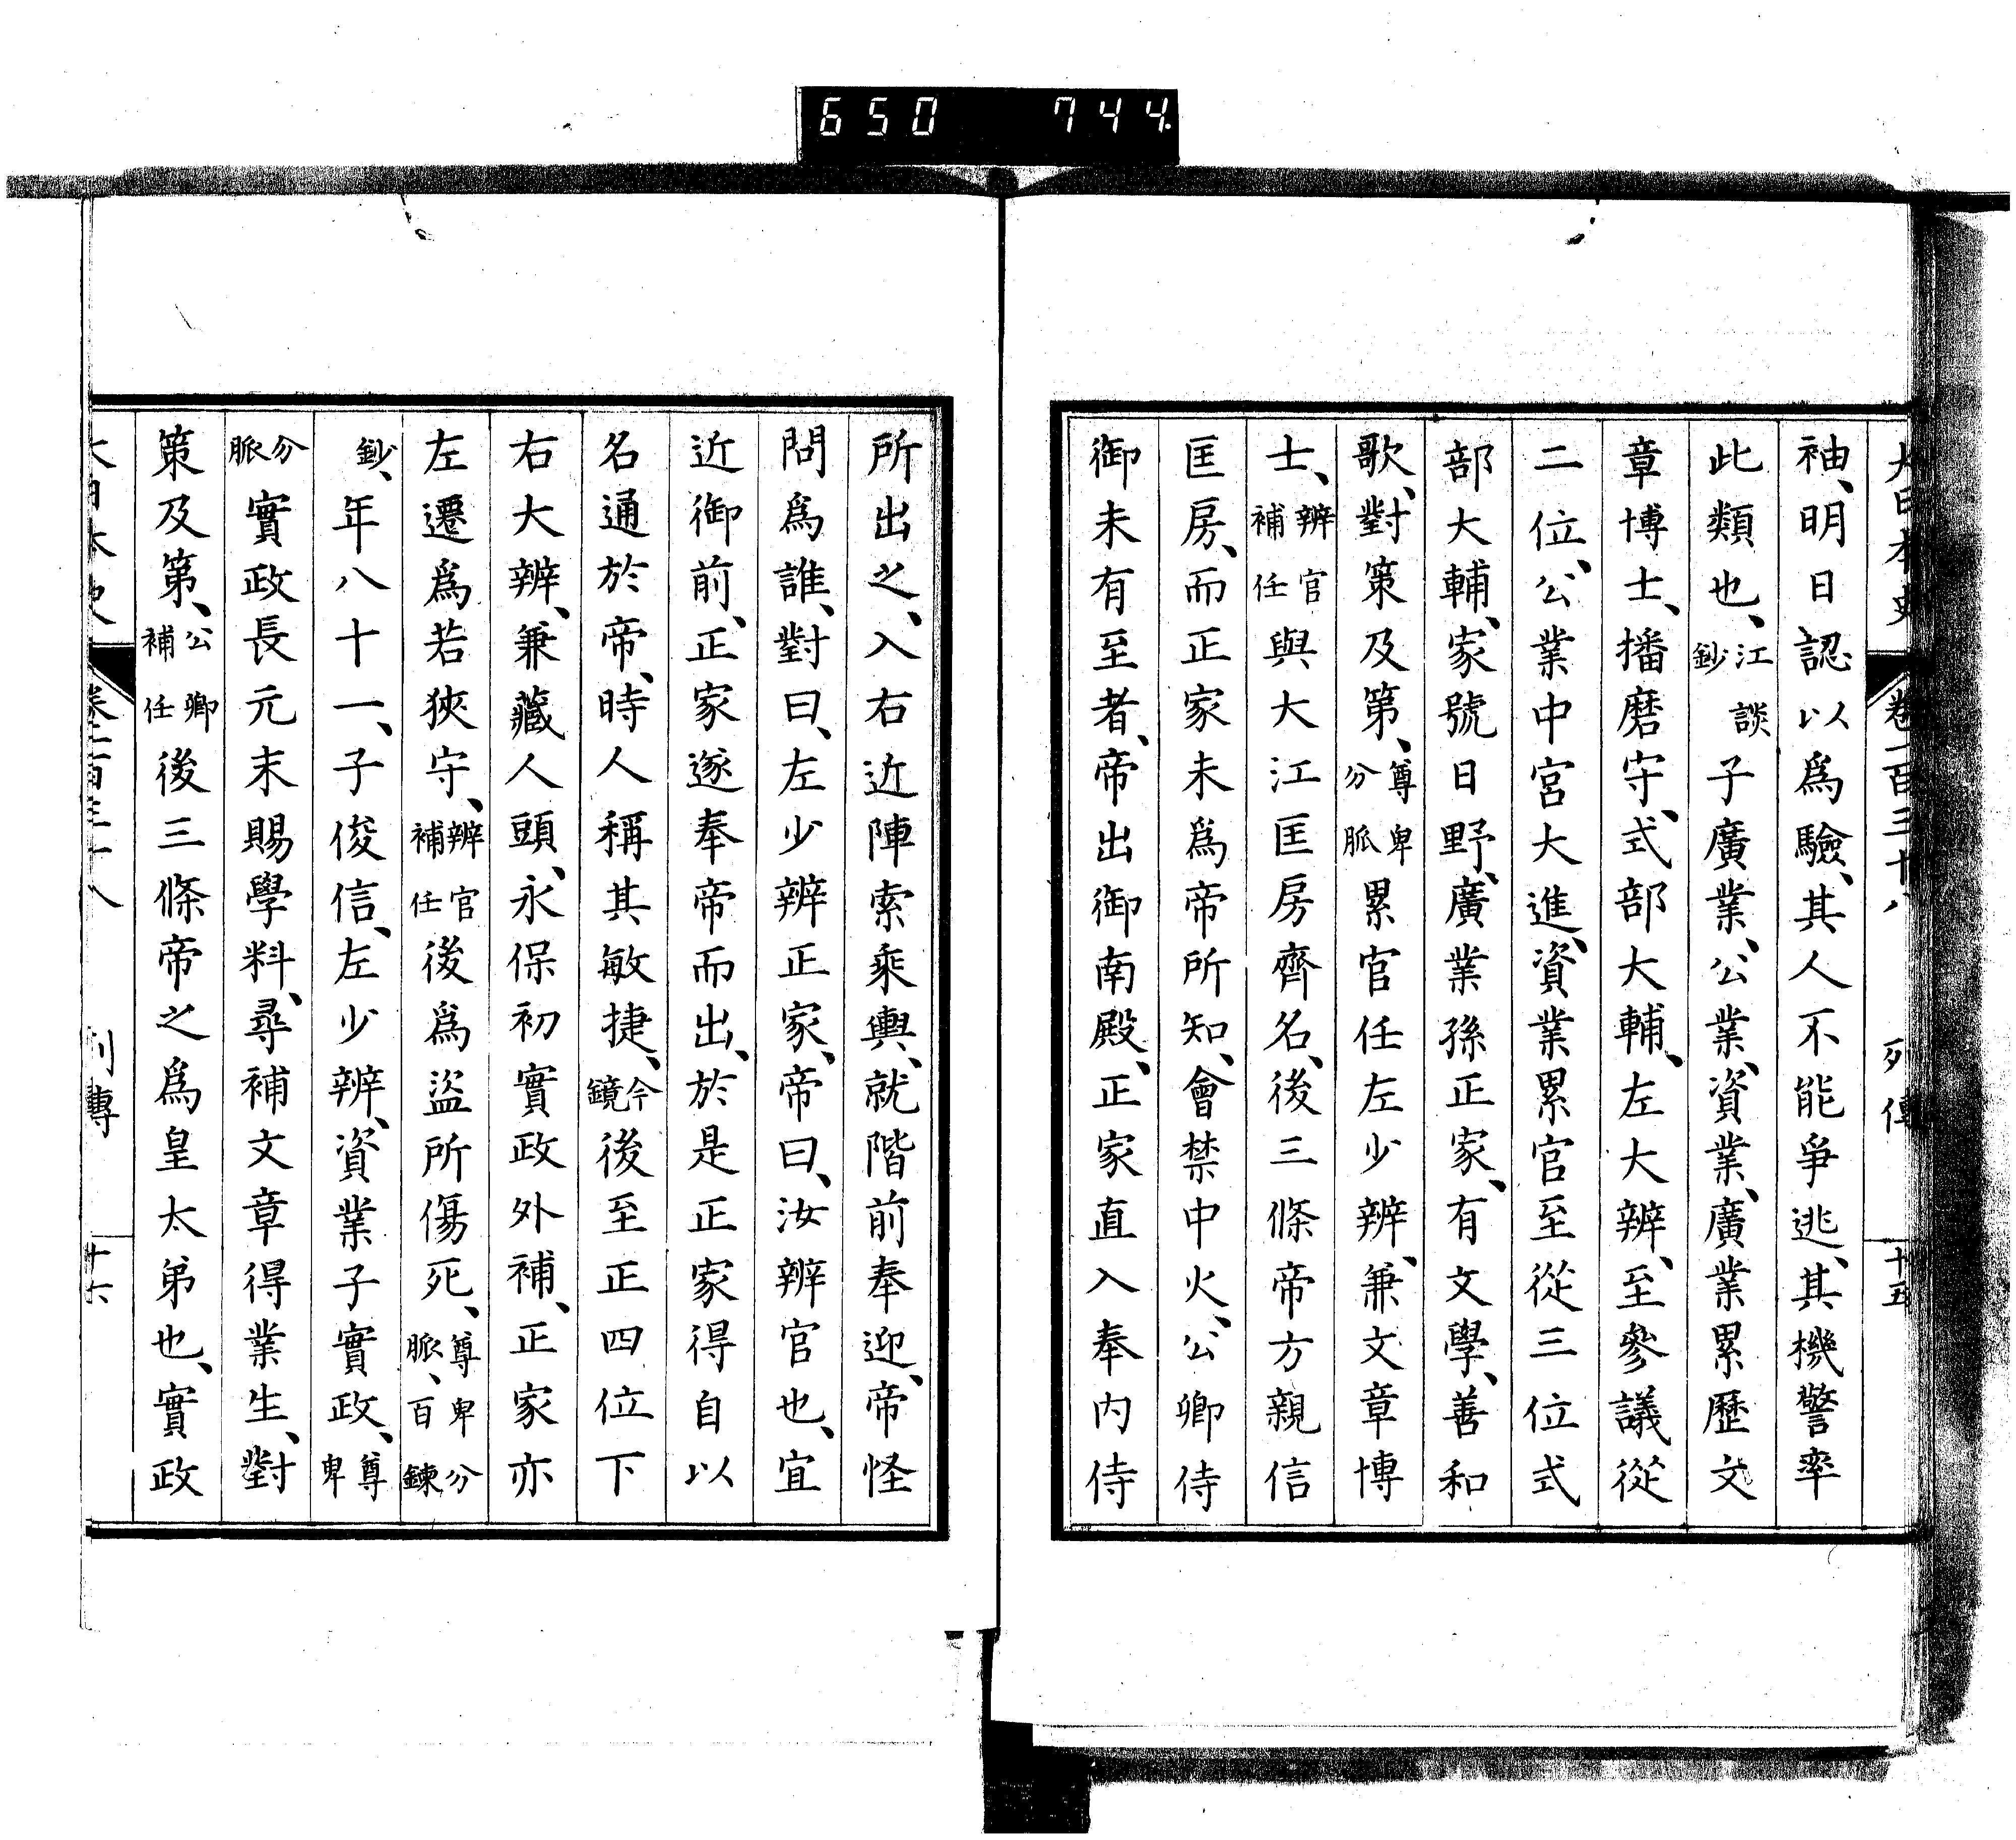 650 744
大日本史 卷一百三十八 列傳 十五
袖、明日認以爲驗、其人不能爭逃、其機警率
此類也、江談鈔子廣業、公業、資業、廣業累歷文
章博士、播磨守、式部大輔、左大辨、至參議從
二位、公業中宮大進、資業累官至從三位式
部大輔、家號日野、廣業孫正家、有文學、善和
歌、對策及第、尊卑分脈累官任左少辨、兼文章博
士、辨官補任與大江匡房齊名、後三條帝方親信
匡房、而正家未爲帝所知、會禁中火、公卿侍
御未有至者、帝出御南殿、正家直入奉內侍
所出之、入右近陣索乘輿、就階前奉迎、帝怪
問爲誰、對曰、左少辨正家、帝曰、汝辨官也、宜
近御前、正家遂奉帝而出、於是正家得自以
名通於帝、時人稱其敏捷、今鏡後至正四位下
右大辨、兼藏人頭、永保初實政外補、正家亦
左遷爲若狹守、辨官補任後爲盜所傷死、尊卑分脈、百鍊
鈔、年八十一、子俊信、左少辨、資業子實政、尊卑
分脈實政長元末賜學料、尋補文章得業生、對
策及第、公卿補任後三條帝之爲皇太弟也、實政
大日本史 卷一百三十八 列傳 十六